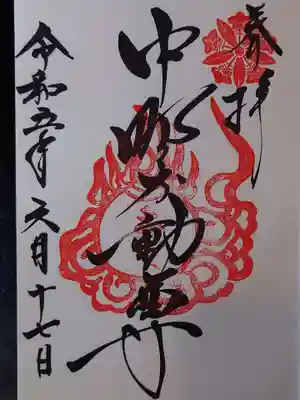 奉拝
中野不動尊
令和五年六月十七日